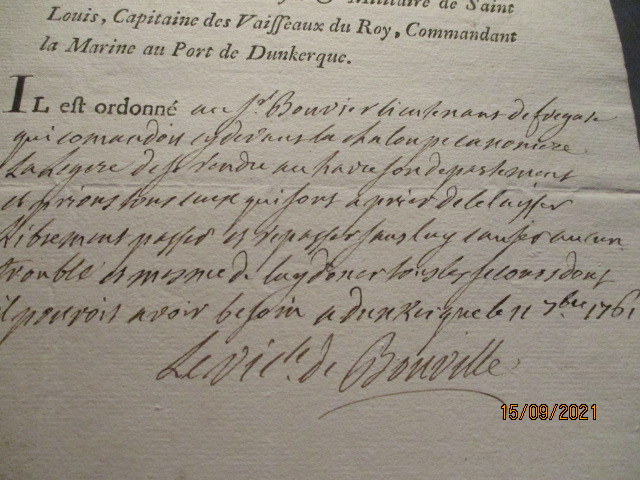 & Militaire de Saint
Louis, Capitaine des Vaisseaux du Roy, Commandant
la Marine au Port de Dunkerque.
IL est ordonné au Sr. Bouvier lieutenant de fregate
qui comandoit cydevant la chaloupe canoniere
La Legere de se rendre au havre son departement
et prions tous ceux qui sont a prier de le laisser
Librement passer et repasser sans luy causer aucun
trouble et mesme de luy doner tous les secours dont
il pouroit avoir besoin a dunkerque le 11 7bre 1761
Le Victe. de Bouville
15/09/2021